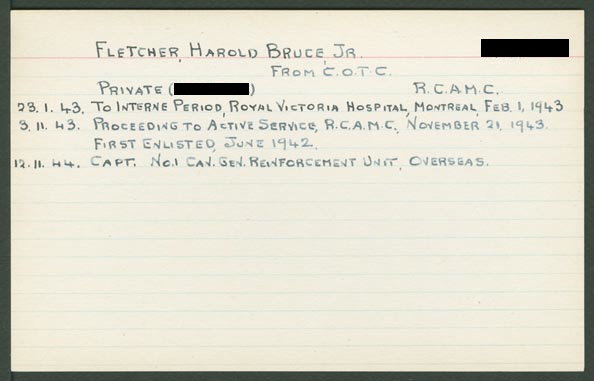 FLETCHER, HAROLD BRUCE, JR.
FROM C.O.T.C.
PRIVATE ( ) R.C.A.M.C.
23.1.43. TO INTERNE PERIOD, ROYAL VICTORIA HOSPITAL, MONTREAL, FEB. 1, 1943
3.11.43. PROCEEDING TO ACTIVE SERVICE, R.C.A.M.C., NOVEMBER 21, 1943.
FIRST ENLISTED, JUNE 1942.
12.11.44. CAPT. NO.1 CAN. GEN. REINFORCEMENT UNIT, OVERSEAS.